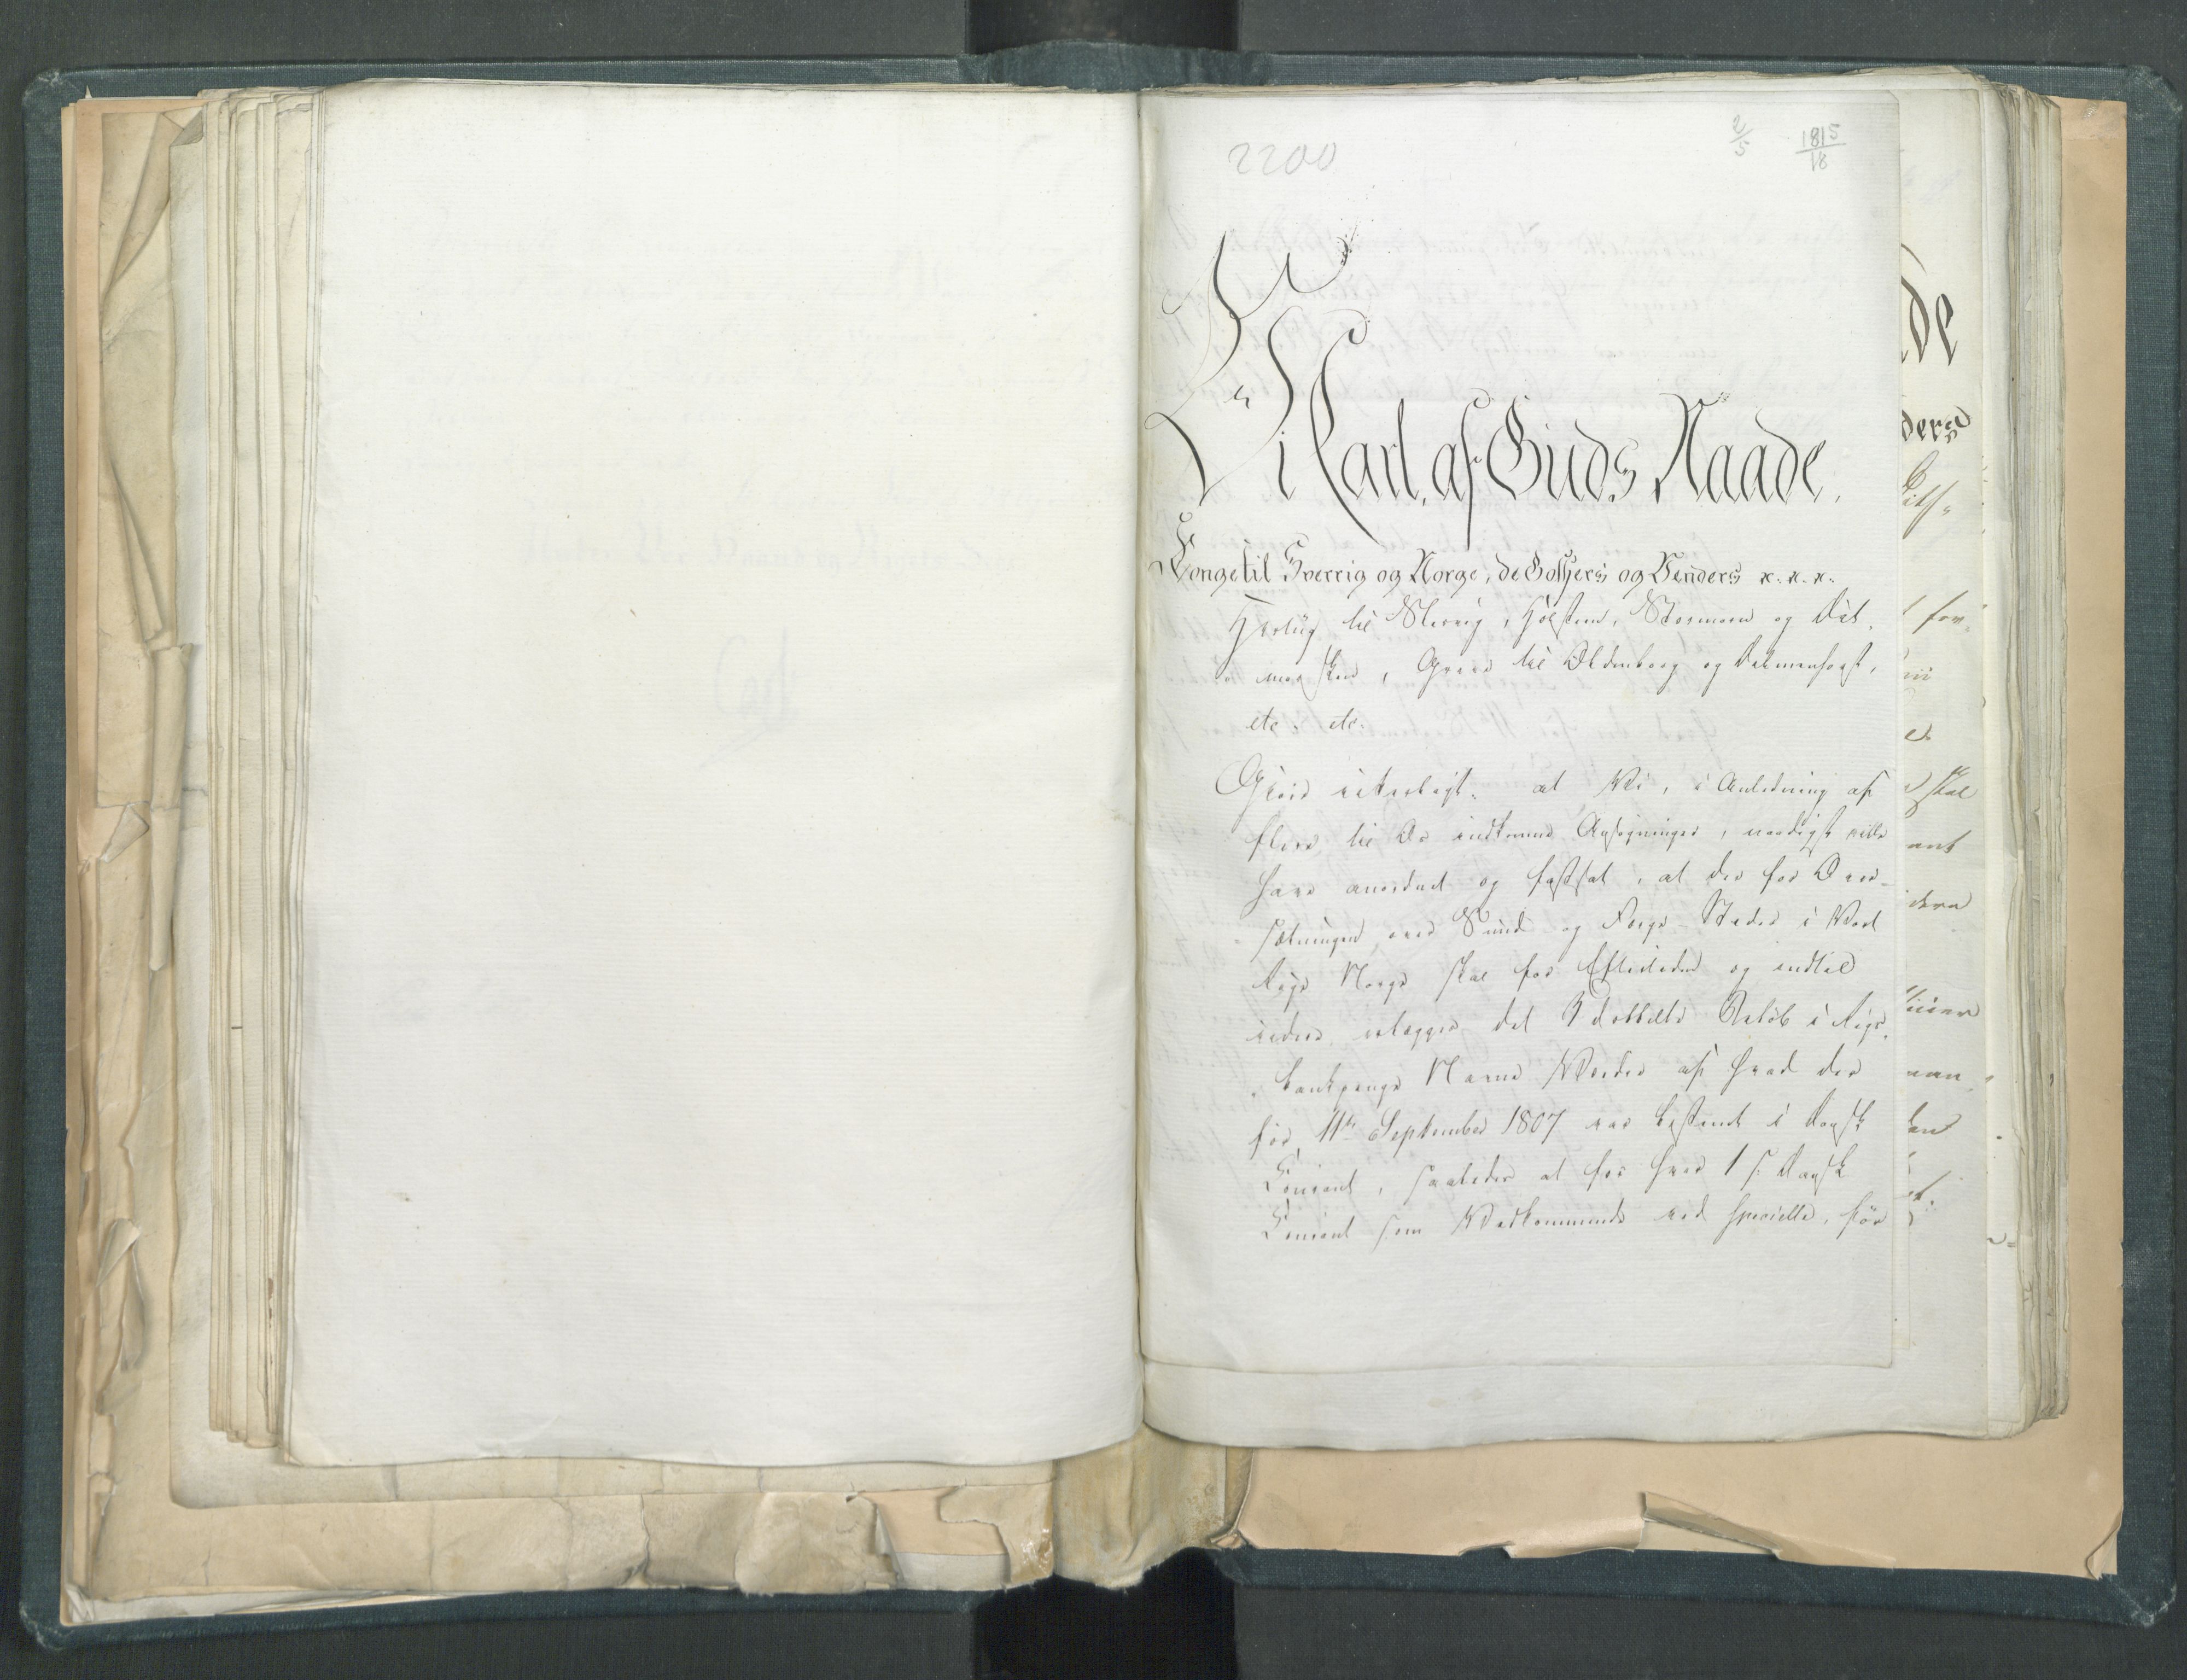 2200
2/5
1815/18
Vi Carl, af Guds Naade,
Konge til Sverrig og Norge, de Gothers og Venders x. x. x.
Hertug til Slesvig, Holsteen, Stormarn og Dit-
marsken, Greve til Oldenborg og Delmenhorst,
etc. etc.
Giøre vitterligt: at Vi, i Anledning af
flere til Os indkomne Ansøgninger, naadigst ville
have anordnet og fastsat, at der for Over-
sætningen over Sund- og Færge-Steder i Vort
Rige Norge skal for Eftertiden og indtil
videre erlægges det Dobbelte Beløb i Rigs-
bankpenge Navne Værdie af hvad der
før 11te September 1807 var bestemt i dansk
Courant, saaledes at for hver 1 s. dansk
Courant som Vedkommende ved specielle, før
de
ders
t for-
skal